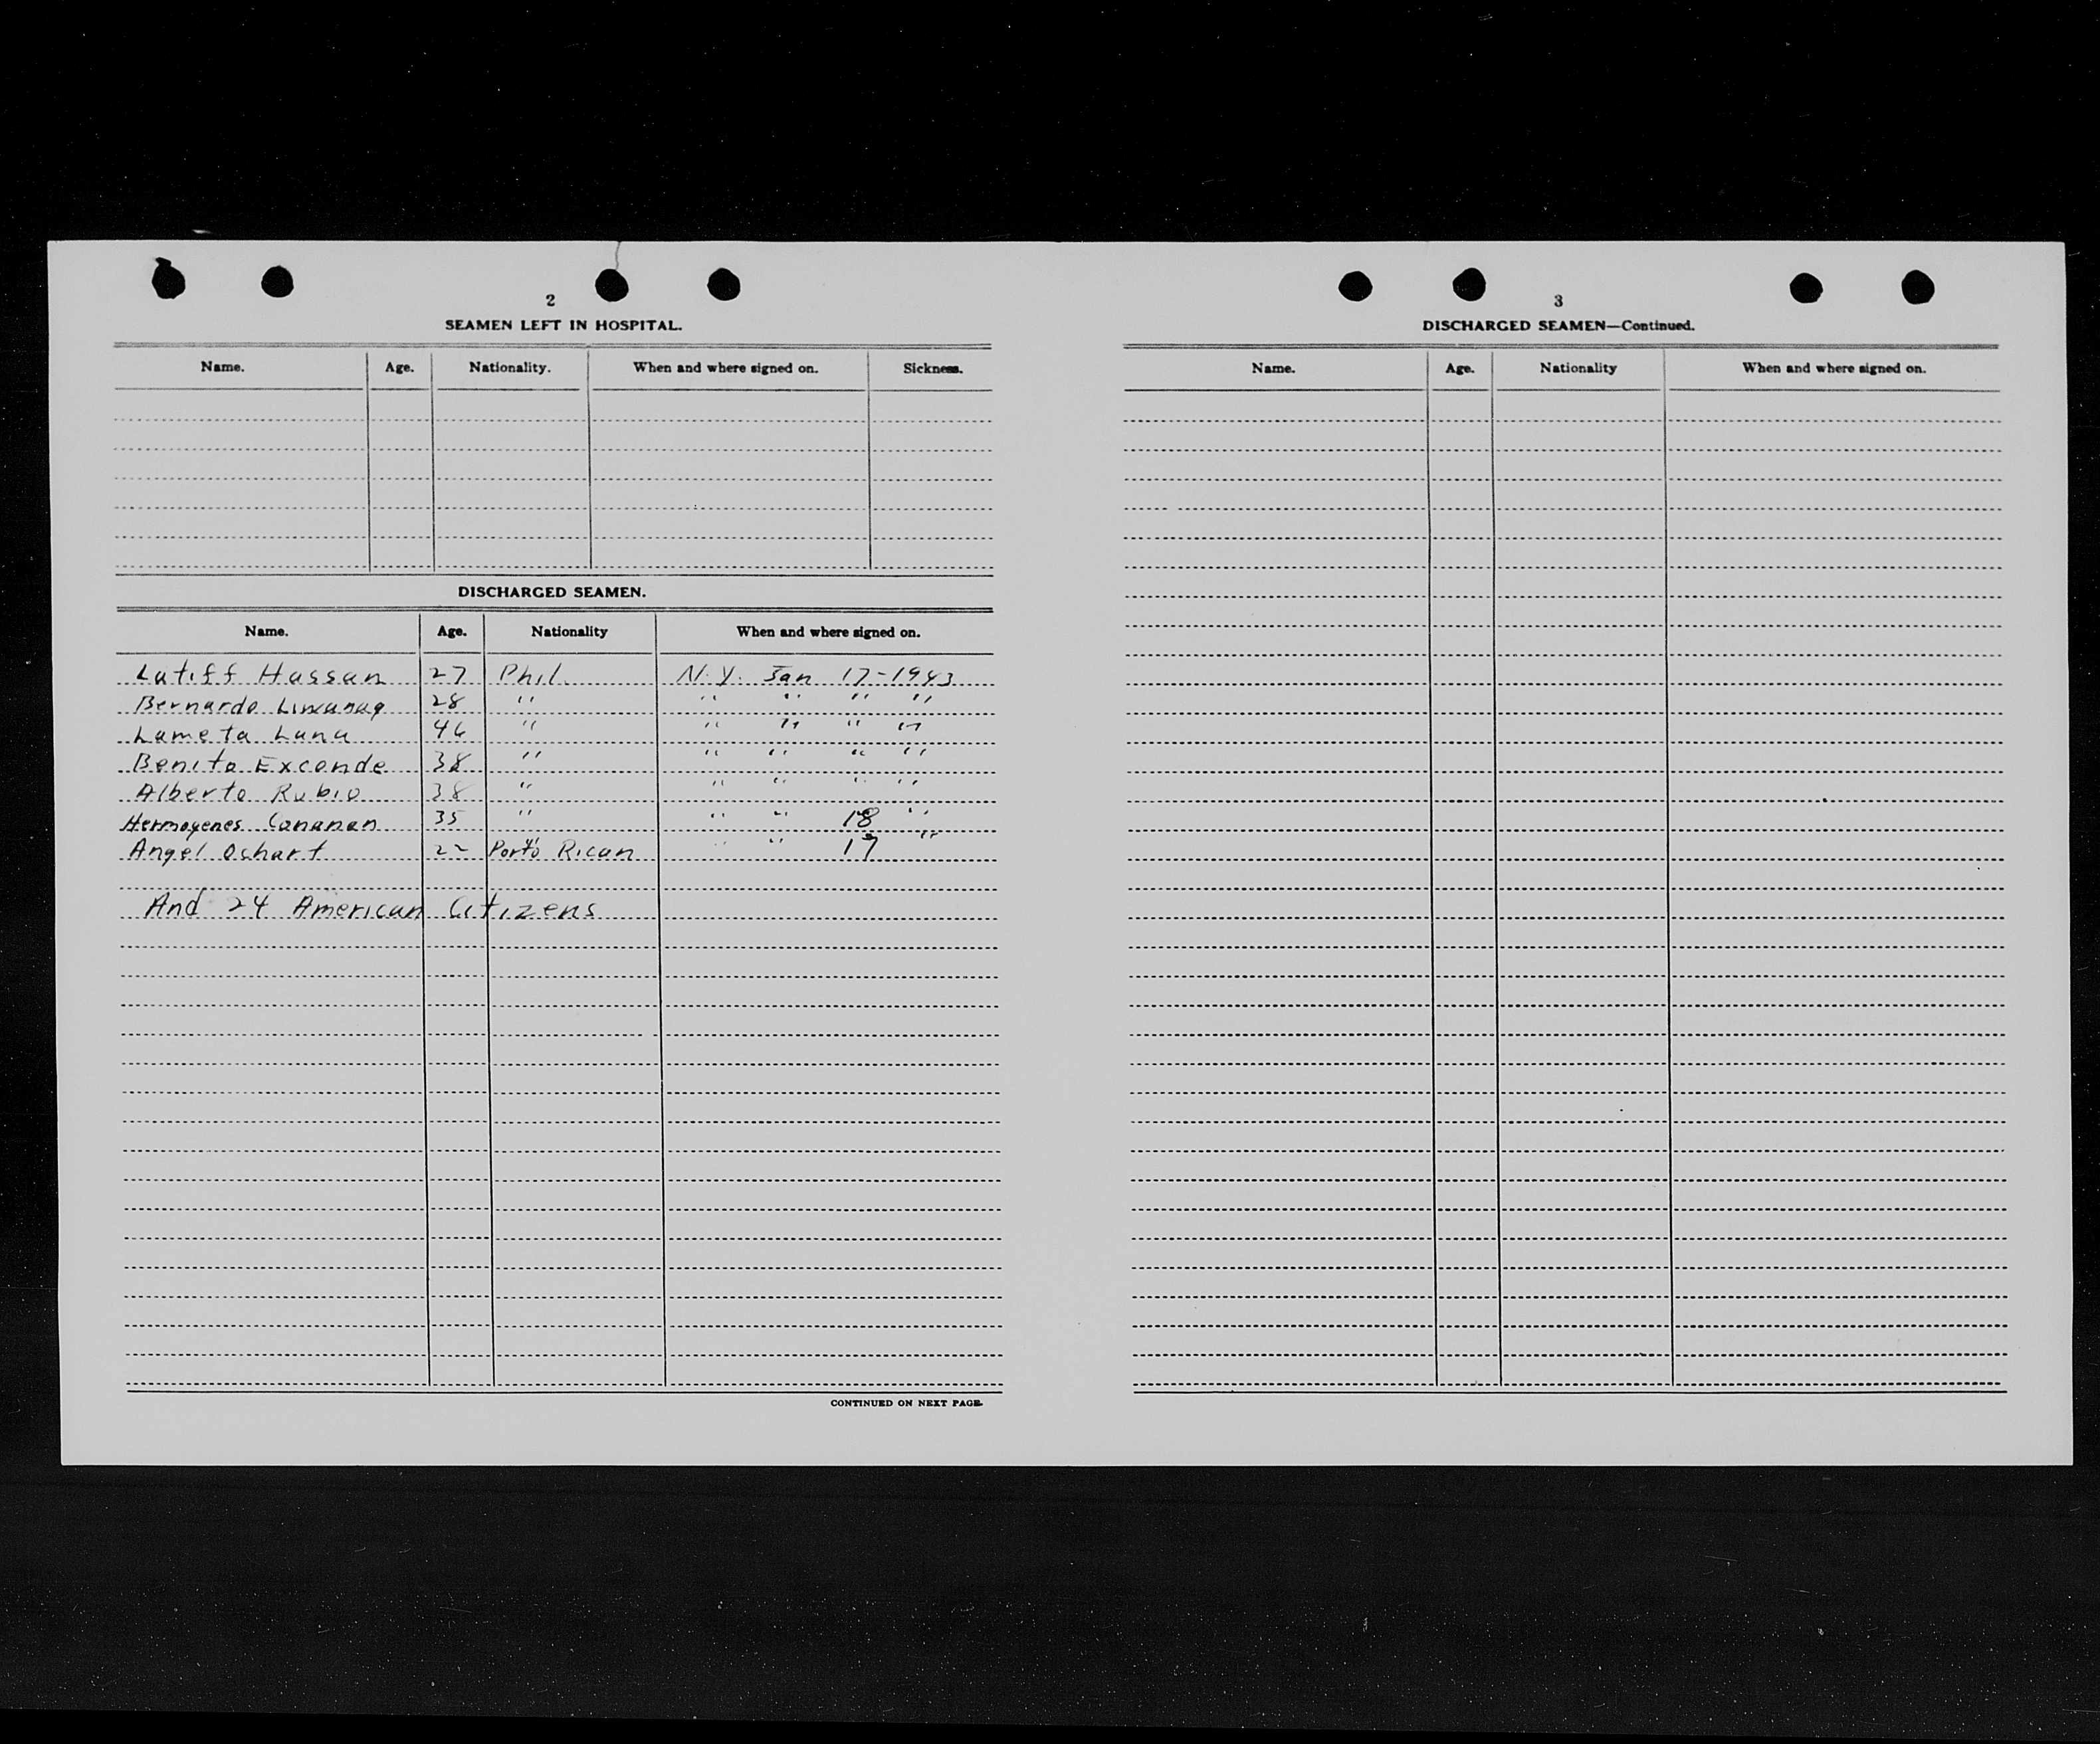 2
SEAMEN LEFT IN HOSPITAL.
Name. Age. Nationality. When and where signed on. Sickness.
DISCHARGED SEAMEN.
Name. Age. Nationality When and where signed on.
Latiff Hassan 27 Phil. N.Y. Jan 17-1943
Bernardo Liwanag 28 " " " " "
Lameta Luna 46 " " " " "
Benito Exconde 38 " " " " "
Alberto Rubio 38 " " " " "
Hermogenes Cananan 35 " " " 18 "
Angel Ochart 22 Porto Rican " " 17 "
And 24 American Citizens
CONTINUED ON NEXT PAGE.
3
DISCHARGED SEAMEN—Continued.
Name. Age. Nationality When and where signed on.